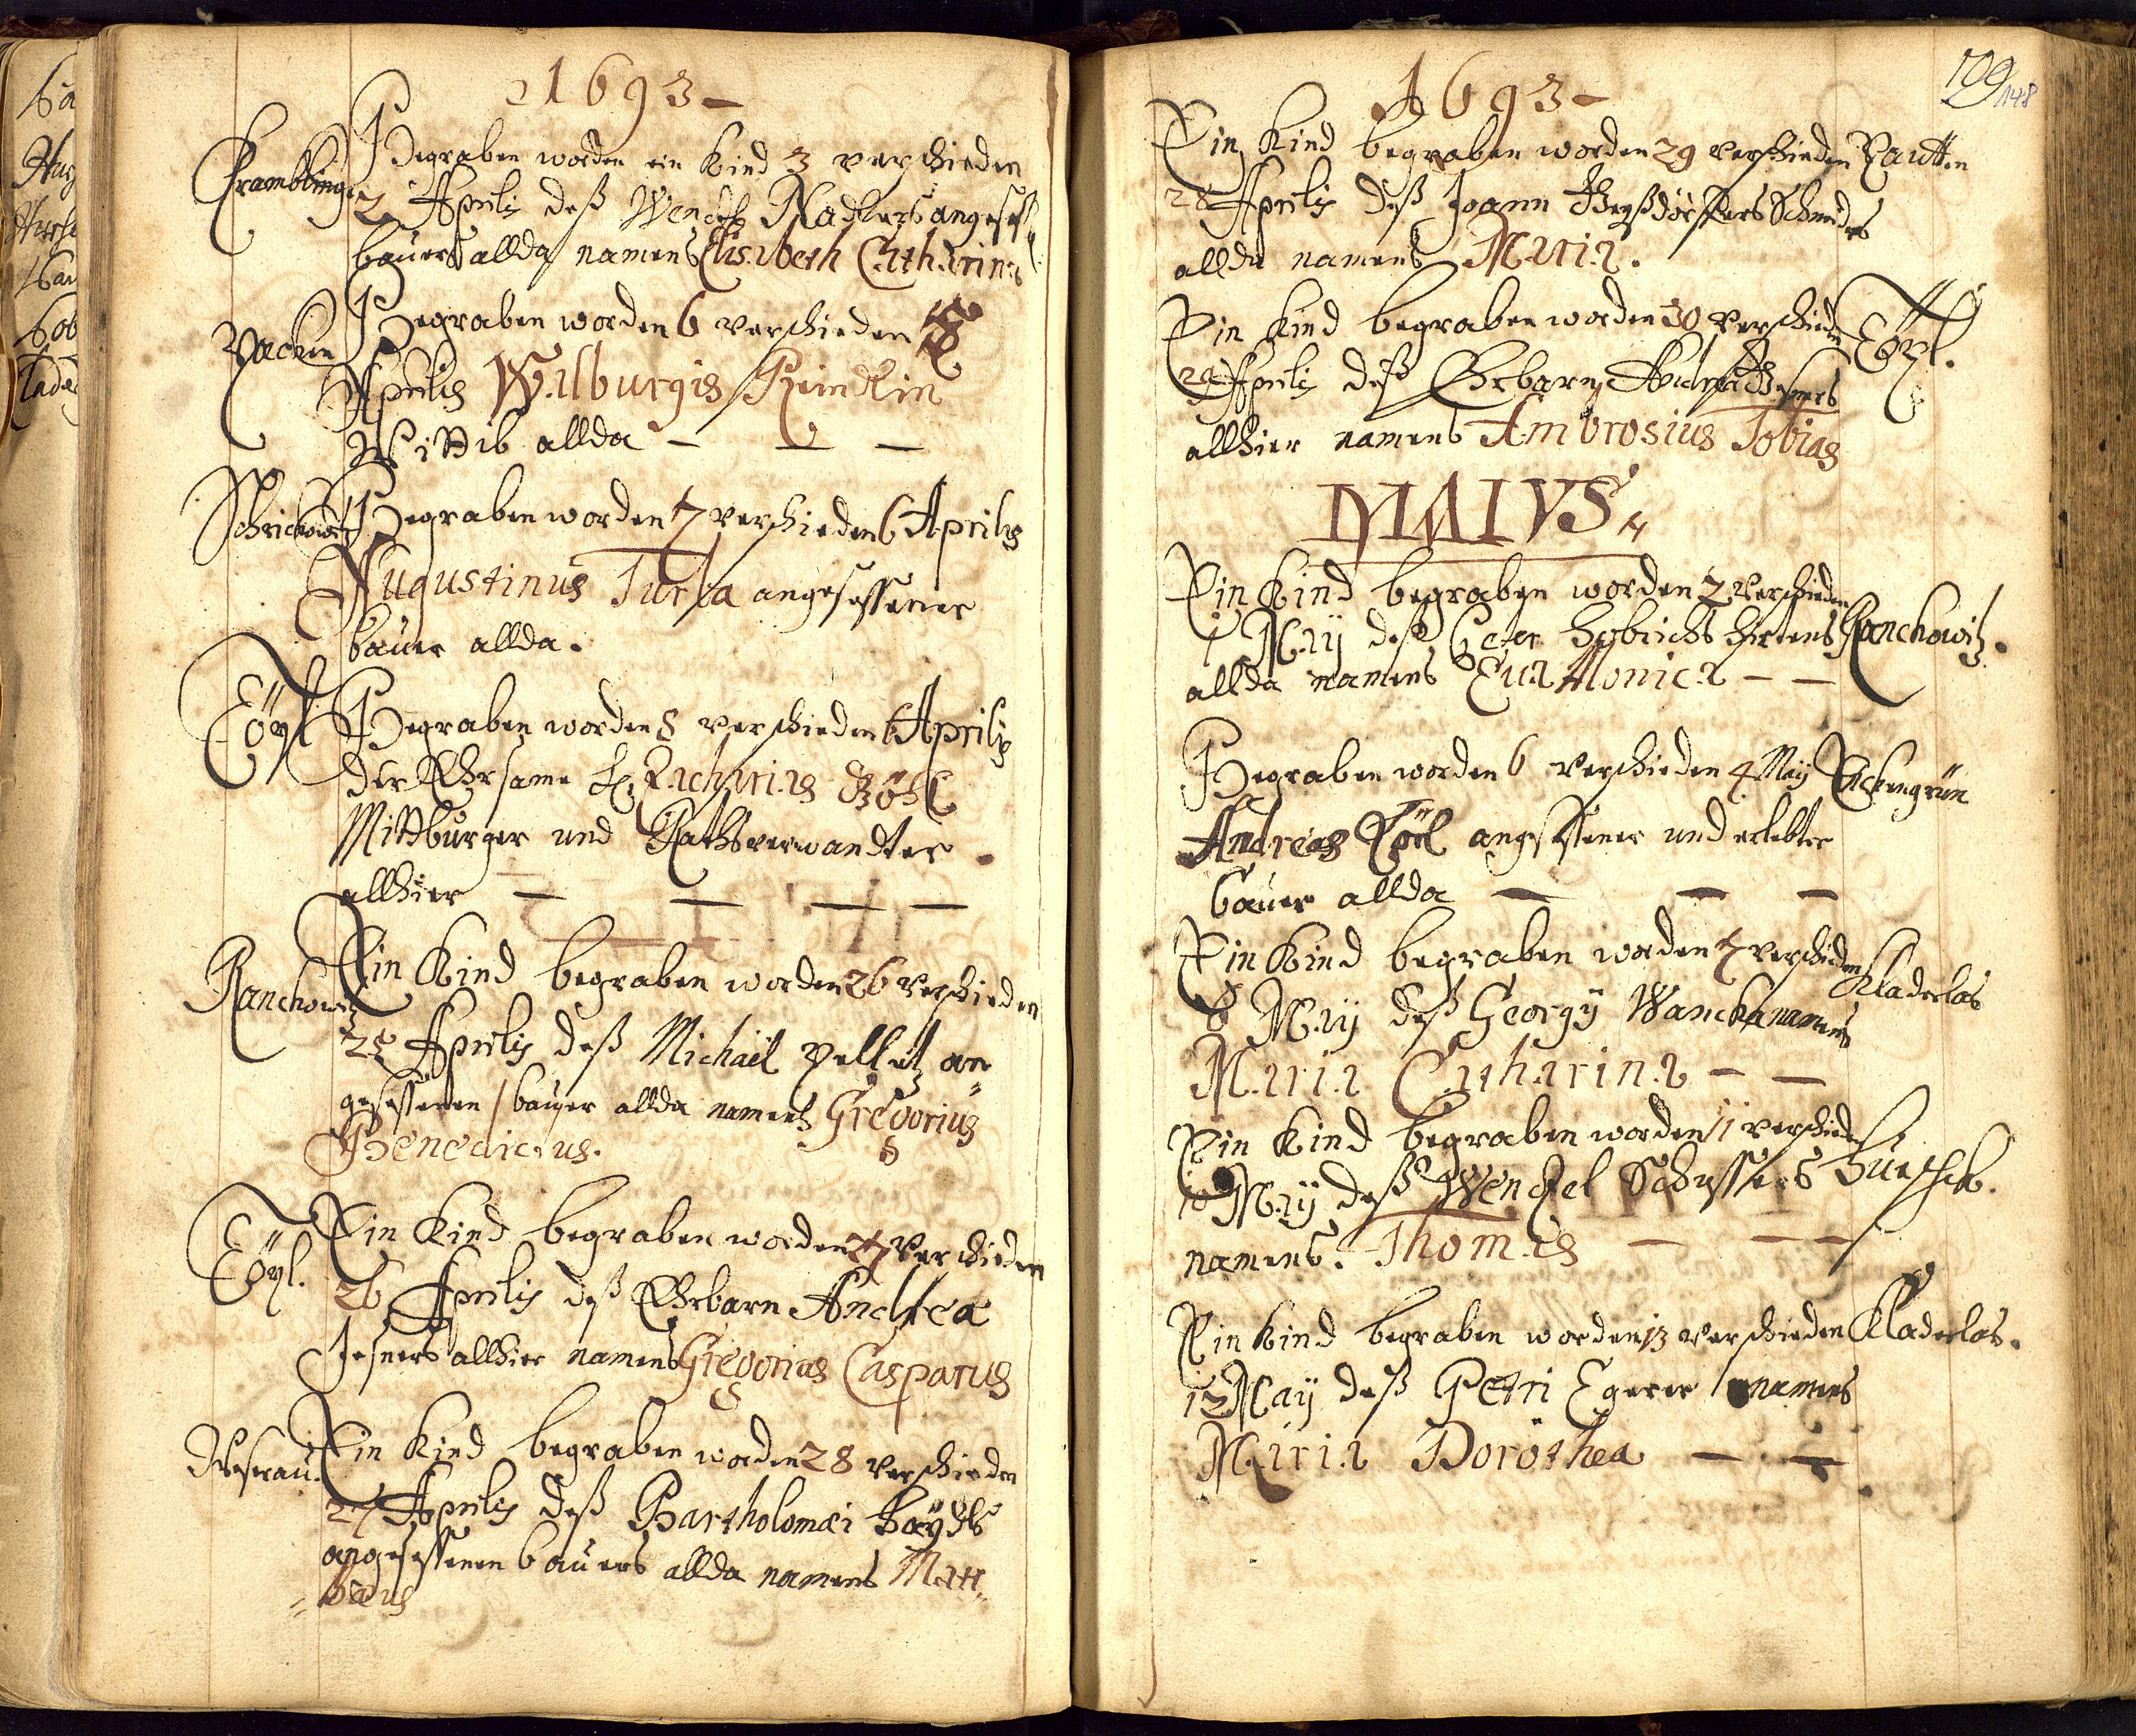 1693
Crambling
Begraben worden ein Kind 3 verschieden
2 Aprilis deß Wentzl Nadlers angeseß.
bauers allda namens Elisabeth Catharina
Begraben worden 6 verschieden
Aprilis Wilburgis
Wittib allda
Begraben worden 7 verschieden 6 Aprilis
Augustinus Turba angesessener
bauer allda.
Töpl
Begraben worden 8 verschieden 6 Aprilis
der Ehrsame H. Zacharias
Mittburger und Rathsverwandter
allhier
Ranchowitz
Ein Kind begraben worden 26 verschieden
25 Aprilis deß Michäel an
gesessenen bauer allda namens Gregorius
Benedictus.
Töpl.
Ein Kind begraben worden 27 verschieden
26 Aprilis deß Ehrbarn Andrea
allhier namens Gregorius Casparus
Ein Kind begraben worden 28 verschieden
27 Aprilis deß Bartholomæi
angesessenen bauers allda namens Matt
hæus
1693
148
Ein Kind begraben worden 29 verschieden
28 Aprilis deß Joann Schneiders
allda namens Maria.
Ein Kind begraben worden 30 verschieden Töpl.
29 Aprilis deß Ehrbarn Andreæ
allhier namens Ambrosius Tobias
MAIVS
Ein Kind begraben worden 2 verschieden
1 Maÿ deß Peter hirtens Ranchowitz.
allda namens Eua Monica
Begraben worden 6 verschieden 4 Maÿ
Andreas angesessener und erlebter
bauer allda
Ein Kind begraben worden 7 verschieden Kladerlas
6 Maÿ deß Georgÿ Wancka namens
Maria Catharina
Ein Kind begraben worden 11 verschieden
10 Maÿ deß Wentzel
namens. Thomas
Ein Kind begraben worden 13 verschieden Kladerlas.
12 Maÿ deß Petri Egerer namens
Maria Dorothea